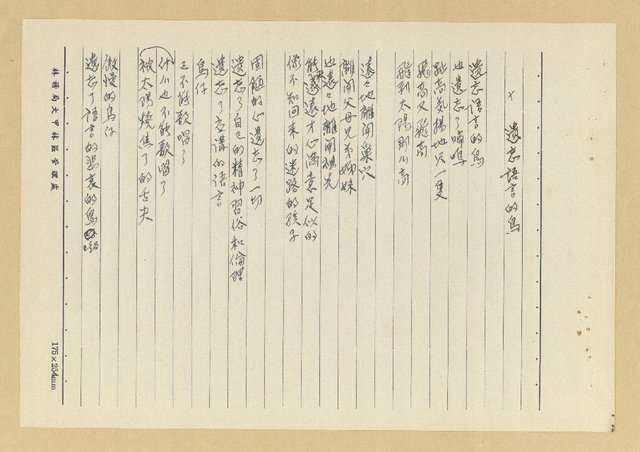 × 遺忘語言的鳥
遺忘語言的鳥
也遺忘了啼鳴
趾高氣揚地只一隻
飛高又飛高
飛到太陽那麼高
遠々地離開巢穴
離開父母兄弟姊妹
也遠々地離開祖先
能遠遠才心滿意足似的
像不知回來的迷路的孩子
固陋的心遺忘了一切
遺忘了自己的精神習俗和倫理
遺忘了交講的語言
鳥仔
已不能歌唱了
什麼也不能歌唱了
被太陽燒焦了的舌尖
傲慢的鳥仔
遺忘了語言的悲哀的鳥
林務局大甲林區管理處
175×254mm